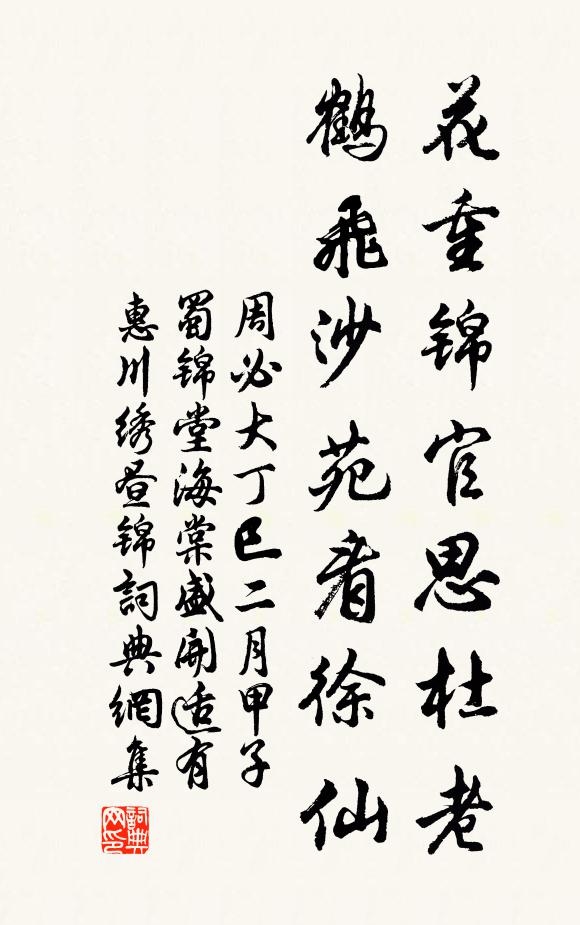 花重锦官思杜老
鹤飛沙苑看徐仙
周必大丁巳二月甲子
蜀锦堂海棠盛開适有
惠川绣昼锦詞典網集
詞典
网印